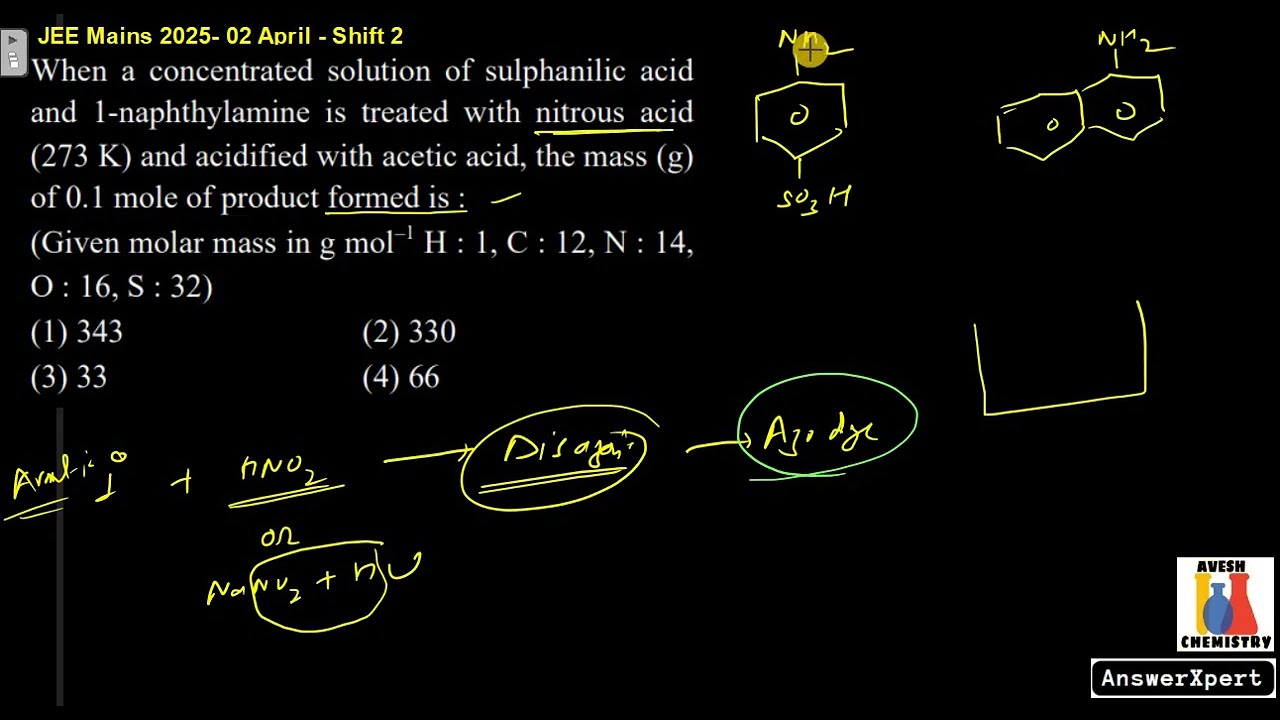 JEE Mains 2025- 02 April - Shift 2
When a concentrated solution of sulphanilic acid
and 1-naphthylamine is treated with nitrous acid
(273 K) and acidified with acetic acid, the mass (g)
of 0.1 mole of product formed is :
(Given molar mass in g mol⁻¹ H : 1, C : 12, N : 14,
O : 16, S : 32)
(1) 343 (2) 330
(3) 33 (4) 66
NH₂
SO₃H
NH₂
1° + HNO₂ → → Azo dye
OR
NaNO₂ + HCl
AVESH
CHEMISTRY
AnswerXpert